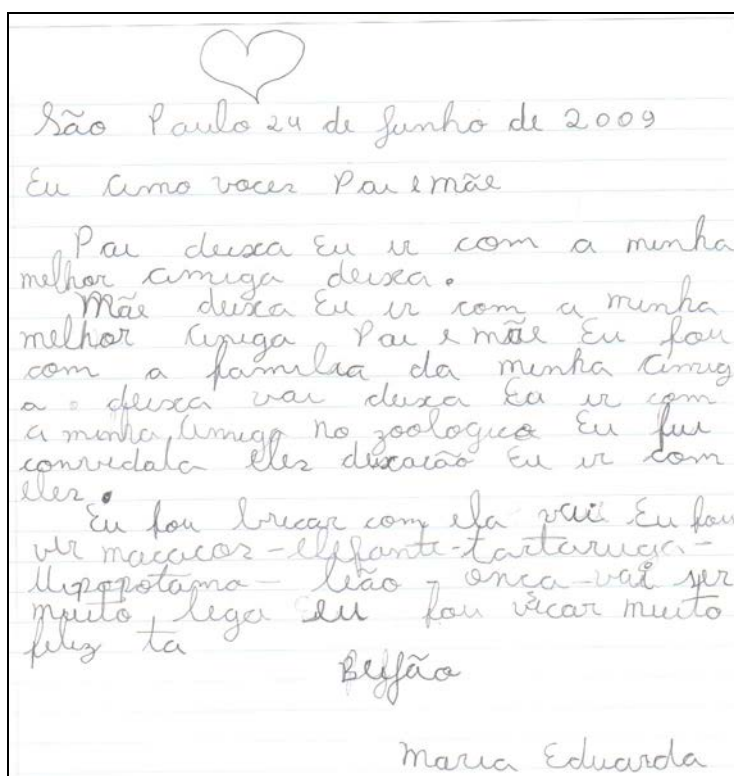 São Paulo 24 de Junho de 2009
Eu amo voces Pai e mãe
Pai deixa Eu ir com a minha
melhor amiga deixa.
Mãe deixa Eu ir com a minha
melhor amiga Pai e mãe Eu fou
com a familia da minha amig
a. deixa vai deixa Eu ir com
a minha amiga no zoologico Eu fui
convidala eles dixarão Eu ir com
eles.
Eu fou bricar com ela vai Eu fou
vir macacos-elefante-tartaruga-
leão - onca-vai ser
muito lega eu fou vicar muito
feliz ta
Beffão
Maria Eduarda